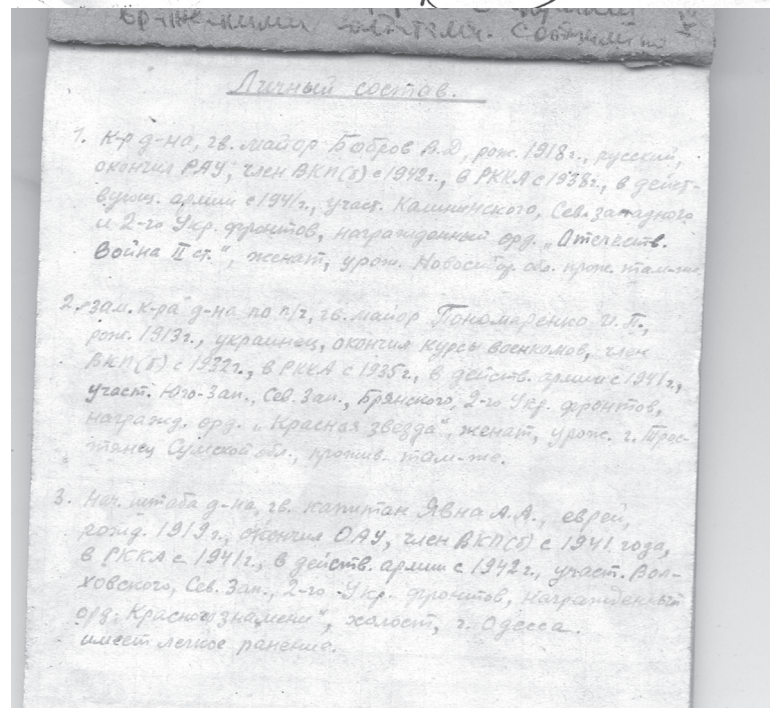 Личный состав.
1. К-р д-на, гв. майор Бобров В.Д, рож. 1918г., русский,
окончил РАУ, член ВКП(б) с 1942г., в РККА с 1938г., в дейст-
вующ. армии с 1941г., участ. Калининского, Сев. западного
и 2-го Укр. фронтов, награжденный орд. „Отечеств.
Война II ст.“, женат, урож. Новосибир. обл. прож. там-же.
2. зам. к-ра д-на по п/ч, гв. майор Пономаренко И.П.,
рож. 1913г., украинец, окончил курсы военкомов, член
ВКП(б) с 1932г., в РККА с 1935г., в действ. армии с 1941г.,
участ. Юго-Зап., Сев. Зап., Брянского, 2-го Укр. фронтов,
награжд. орд. „Красная звезда“, женат, урож. г. Трос-
тянец Сумской обл., прожив. там-же.
3. Нач. штаба д-на, гв. капитан Явна А.А., еврей,
рожд. 1919г., окончил ОАУ, член ВКП(б) с 1941 года,
в РККА с 1941г., в действ. армии с 1942г., участ. Вол-
ховского, Сев. Зап., 2-го Укр. фронтов, награжденный
орд. Красное знамени“, холост, г. Одесса.
имеет легкое ранение.